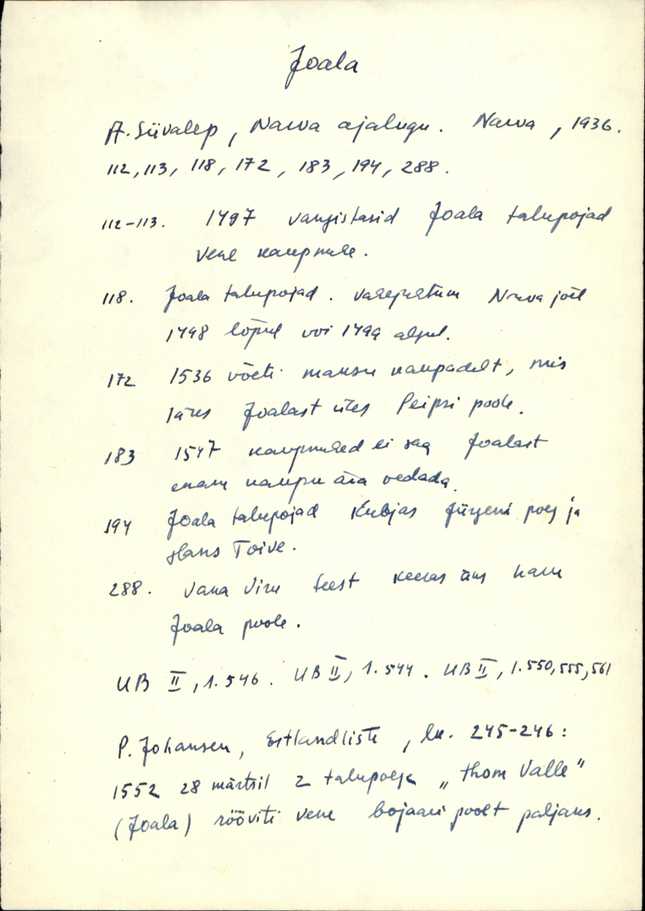 Joala
A. Süvalep, Narva ajalugu. Narva, 1936.
112, 113, 118, 172, 183, 194, 288.
112-113. 1497 vangistasid Joala talupojad
vene kaupmehe.
118. Joala talupojad. Narva jõel
1498 lõpul või 1499 algul.
172 1536 võeti maksu kaupadelt, mis
läks Joalast üles Peipsi poole.
183 1547 kaupmehed ei saa Joalast
enam kaupu ära vedada.
194 Joala talupojad Kubjas Jürgeni poeg ja
Hans Toive.
288. Vana Viru teest keeras üks haru
Joala poole.
UB II, 1.546. UB II, 1.544. UB II, 1.550, 555, 561
P. Johansen, Estlandliste, lk. 245-246:
1552 28 märtsil 2 talupoega „thom Valle"
(Joala) rööviti vene bojaari poolt paljaks.